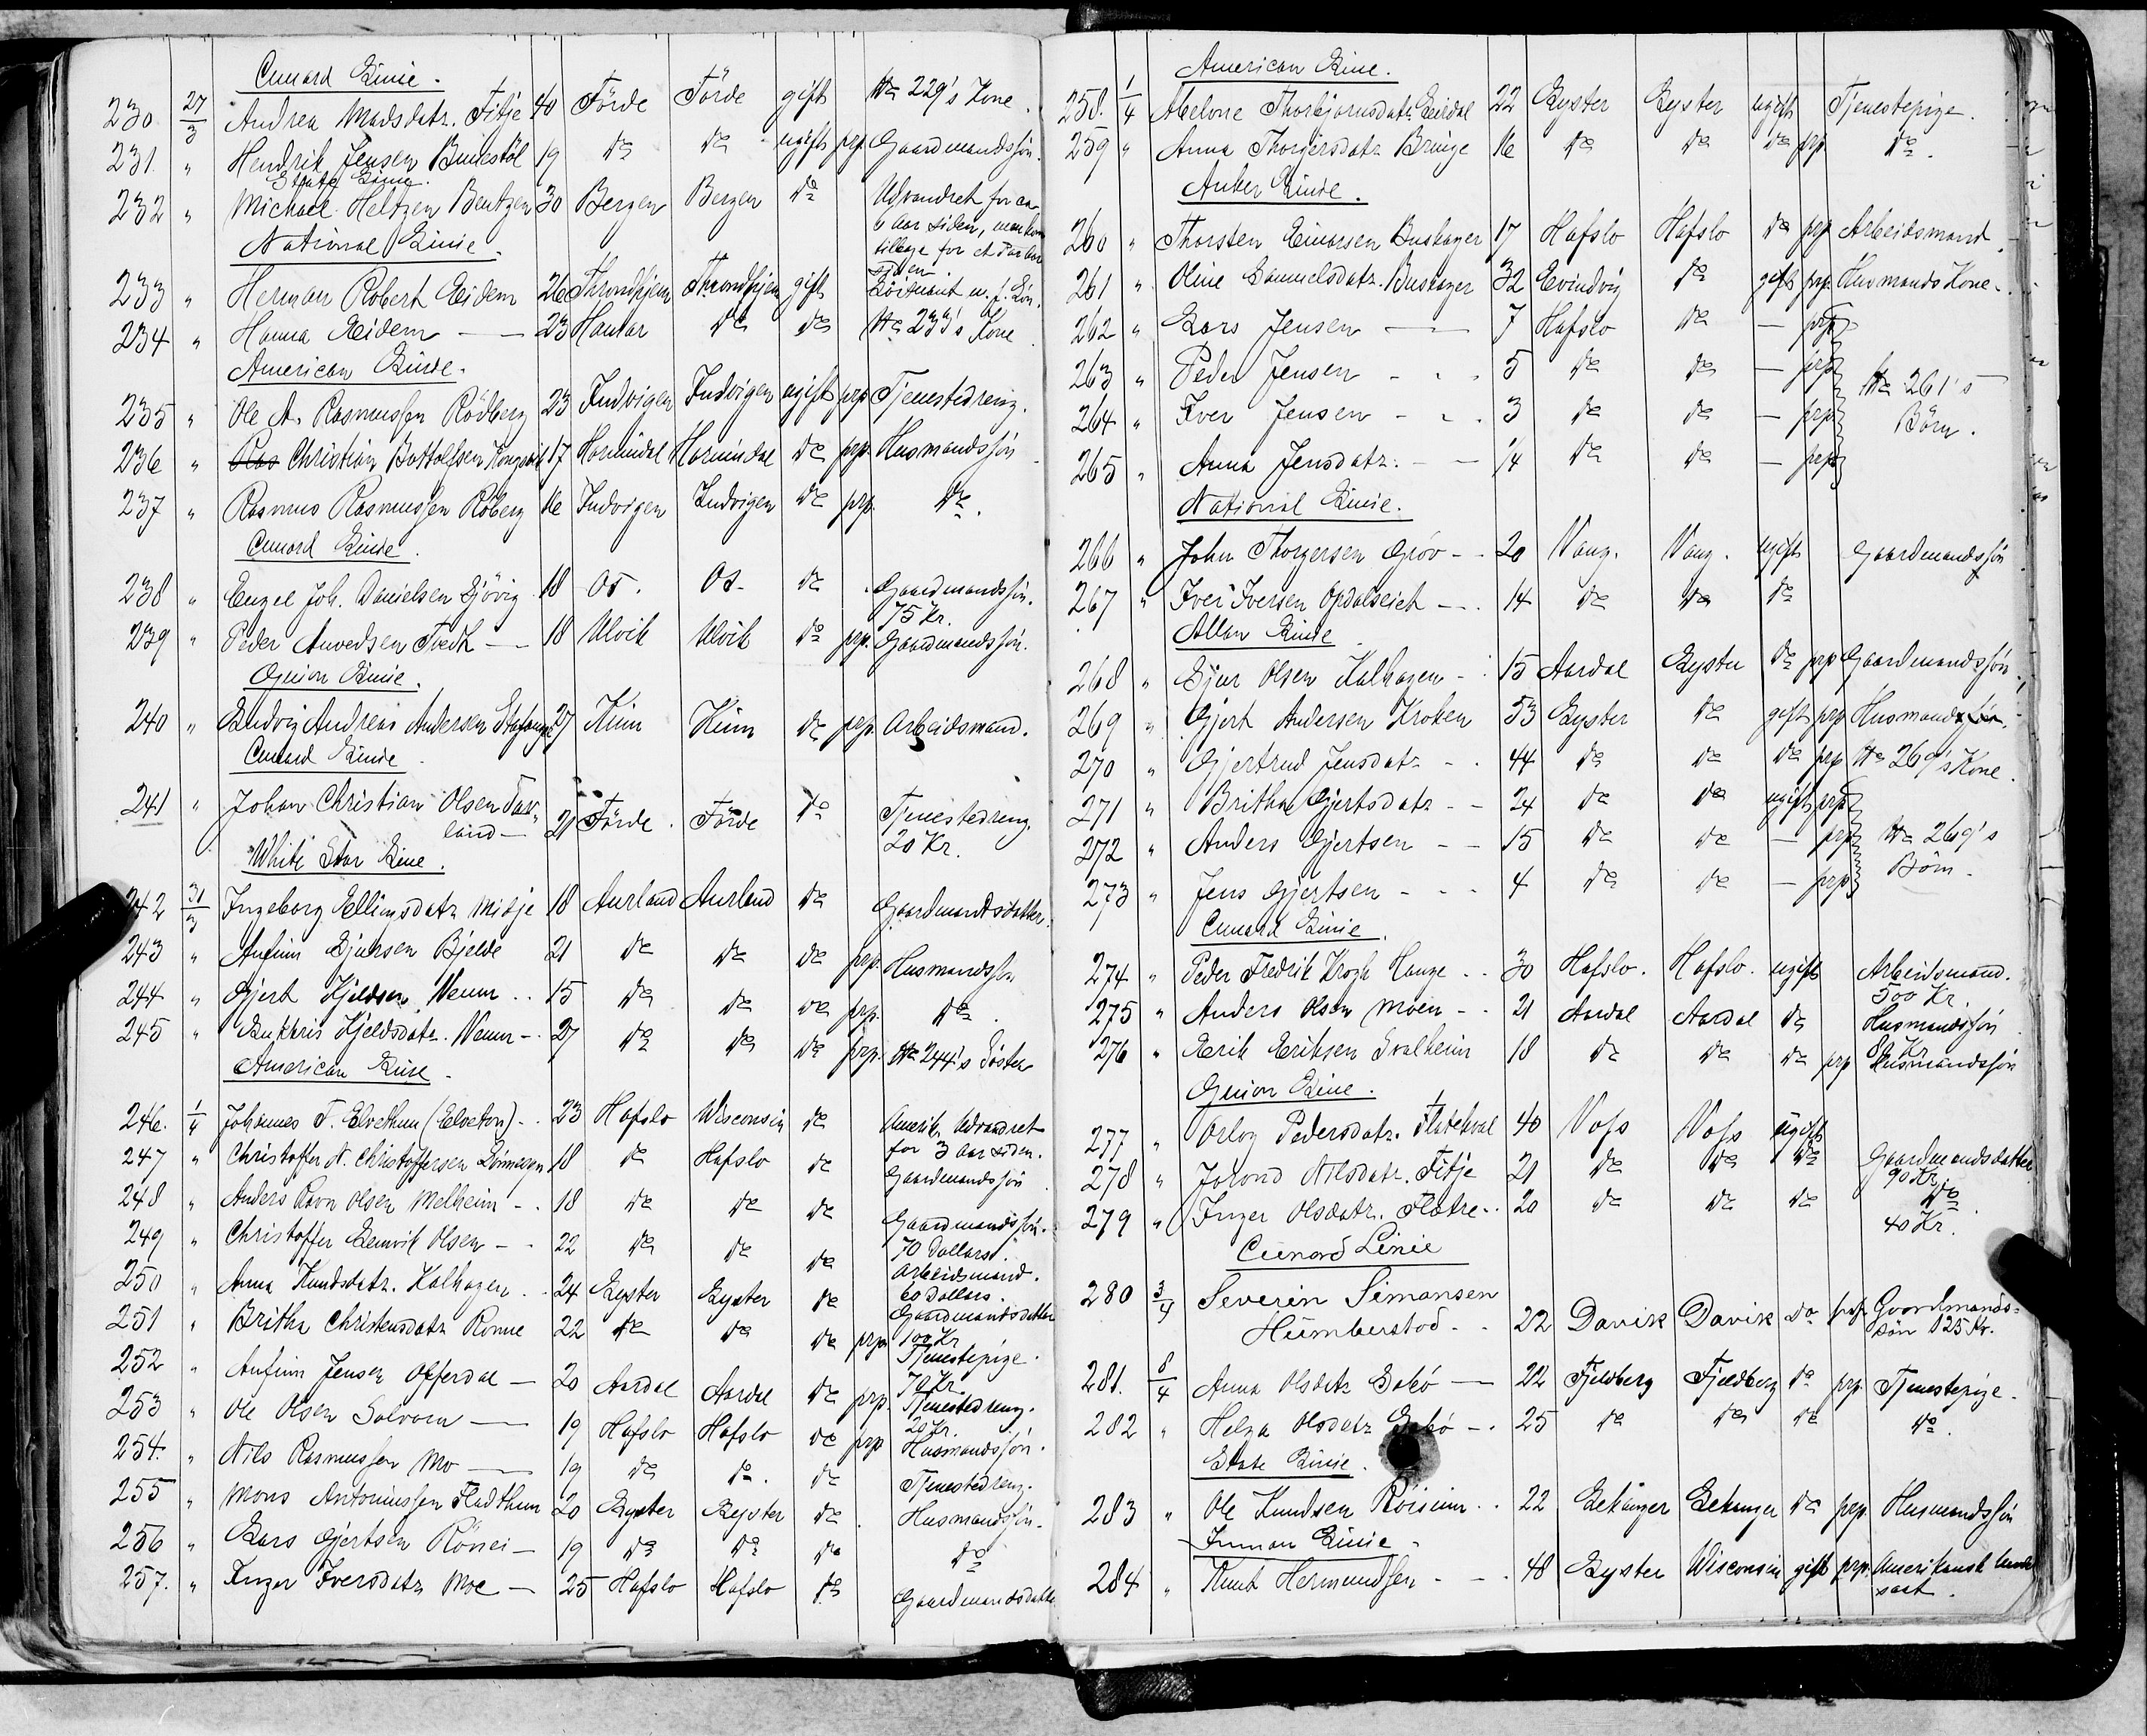 Cunard Linie.
230 27/3 Andrea Madsdatr. Fitje 40 Förde Förde gift No 229's Kone.
231. " Hendrik Jensen 19 do do ugift prp. Gaardmandssøn.
State Linie.
232 " Michael Heltzen Bentzen 30 Bergen Bergen do Udvandret for ca
6 Aar siden, men kom
tilbage for et Par Aar
siden.
National Linie.
233 " Herman Robert Eidem 26 Throndhjem Throndhjem gift
234 " Hanna Eidem — 23 Hamar do do No 233's Kone
American Linie.
235 " Ole A. Rasmussen Rödberg 23 Indvigen Indvigen ugift prp Tjenestedreng.
236 " Christian 17 Hornindal Hornindal do prp. Husmandssøn
237 " Rasmus Rasmussen Röberg 16 Indvigen Indvigen do prp. do.
Cunard Linie.
238 " Engel Joh. Danielsen Sjövig 18 Os. Os. do Gaardmandssøn.
75 Kr.
239 " Peder Anvedsen Tvedt — 18 Ulvik Ulvik do prp. Gaardmandssøn.
Guion Linie.
240 " Ludvig Andreas Andersen 27 Kinn Kinn do prp. Arbeidsmand.
Cunard Linie
241 " Johan Christian Olsen
land — 21 Förde Förde do Tjenestedreng.
20 Kr.
White Star Line.
242 31/3 Ingeborg Ellingsdatr. Midje 18 Aurland Aurland do Gaardmandsdatter.
243 " Anfinn Sjursen Bjelde 21 do do do prp. Husmandssøn
244 " Gjert Kjeldsen Venm .. 15 do do do prp. do.
245 " Kjeldsdatr. Venm - 27 do do do prp. No 244's Söster
American Linie.
246. 1/4 Johannes T. Elvethun (Elveton) - 23 Hafslo Wisconsin do Amerik. Udvandret
for 3 Aar siden.
247 " Christoffer N. Christoffersen 18 do Hafslo do Gaardmandssøn
248 " Anders Ravn Olsen Melheim - 18 do do do Gaardmandssøn.
70 Dollars.
249 " Christoffer Lemvik Olsen - 22 do do do Arbeidsmand.
60 Dollars.
250 " Anna Knudsdatr. Kalhagen 24 Lyster Lyster do Gaardmandsdatter
100 Kr
251 " Britha Christensdatr. Ronne 22 do do do prp Tjenestepige.
70 Kr.
252 " Anfinn Jensen Offerdal — 20 Aardal Aardal do prp. Tjenestedreng.
20 Kr.
253 " Ole Olsen Solvorn — 19 Hafslo Hafslo do prp Husmandssøn.
254. " Nils Rasmussen Mo — 19 do do. do Tjenestedreng.
255 " Mons Antoniussen Fladthun 20 Lyster Lyster do Husmandssøn.
256 " Lars Gjertsen Rönei — 19 do do do do
257. " Inger Iversdatr. Moe — 25 Hafslo Hafslo do Gaardmandsdatter
American Line.
258. 1/4 Thorbjornsdatr. Eirdal 22 Lyster Lyster ugift Tjenestepige.
259 " Anna Thorgersdatr. Bringe 16 do do do prp do.
Anker Linie.
260 " Thorsten Einarsen Buskager 17 Hafslo Hafslo do prp Arbeidsmand.
261 " Oline Samuelsdatr. Buskager 32 Evindvig do gift prp. Husmands Kone.
262 " Lars Jensen — 7 Hafslo do — prp
263 " Peder Jensen - 5 do do — prp No 261's
264 " Iver Jensen - 3 do do — prp Börn.
265 " Anna Jensdatr. - 14 do do — prp
National Linie.
266 " John Thorgersen Gröv - 20 Vang. Vang. ugift Gaardmandssøn
267 " Iver Iversen Opdalseith - 14 do do do
Allan Linie
268 " Sjur Olsen Kalhagen - 15 Aardal Lyster do prp Gaardmandssøn
269 " Gjert Andersen Kroken 53 Lyster do gift prp Husmand
270 " Gjertrud Jensdatr - 44 do do do prp No 269's Kone.
271 " Britha Gjertsdatr - 24 do do ugift prp
272 " Anders Gjertsen - 15 do do — prp No 269's
273 " Jens Gjertsen - 4 do do — prp Börn.
Cunard Linie.
274 " Peder Fredrik Krogh Hauge .. 30 Hafslo. Hafslo. ugift Arbeidsmand.
500 Kr.
275 " Anders Olsen Moen - 21 Aardal Aardal do Husmandssøn
80 Kr
276 " Erik Eriksen Svalheim 18 do do do prp Husmandssøn
Guion Line.
277 " Pedersdatr. 40 Voss Voss ugift
278 " Jorond Nilsdatr. Fitje 21 do do do Gaardmandsdatter.
90 Kr.
279 " Inger Olsdatr. Flatre - 20 do do do do.
40 Kr.
Cunard Linie
280 3/4 Severin Simonsen
Humberstad - 22 Davik Davik do prp Gaardmands-
sön 125 Kr.
281. 8/4 Anna Olsdatr. — 22 Fjeldberg Fjeldberg do prp. Tjenestepige.
282 " Helga Olsdatr. - 25 do do do do.
State Linie.
283 " Ole Knudsen 22 Lekanger Lekanger do prp. Husmandssøn
Inman Linie.
284 " Knut Hermundsen - 48 Lyster Wisconsin gift prp. Amerikansk